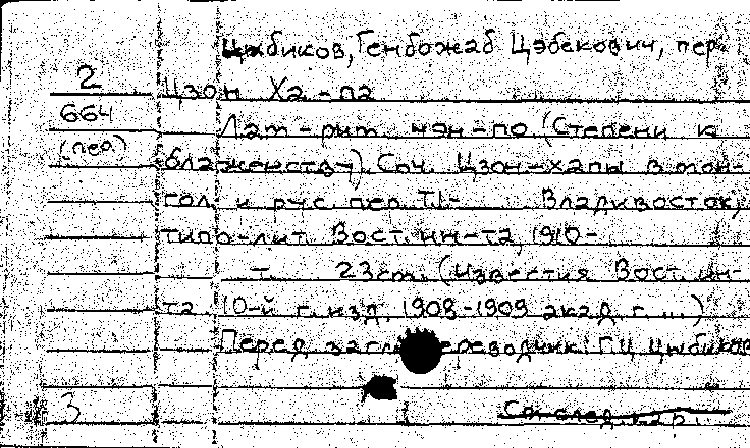 Цыбиков, Гомбожаб Цэбекович, пер.
2
Цзон Ха-па
664
Лам-рим чэн-по (Степени к
(пер)
блаженству). Соч. Цзон-хапы в мон-
гол. и рус. пер. Т.1- Владивосток,
типо-лит. Вост. ин-та, 1910-
т. 23 cm. (Известия Вост. ин-
та. 10-й г. изд. 1908-1909 акад. г. ...)
Перед загл. переводчик: Г.Ц. Цыбиков
3
См. след. кар.